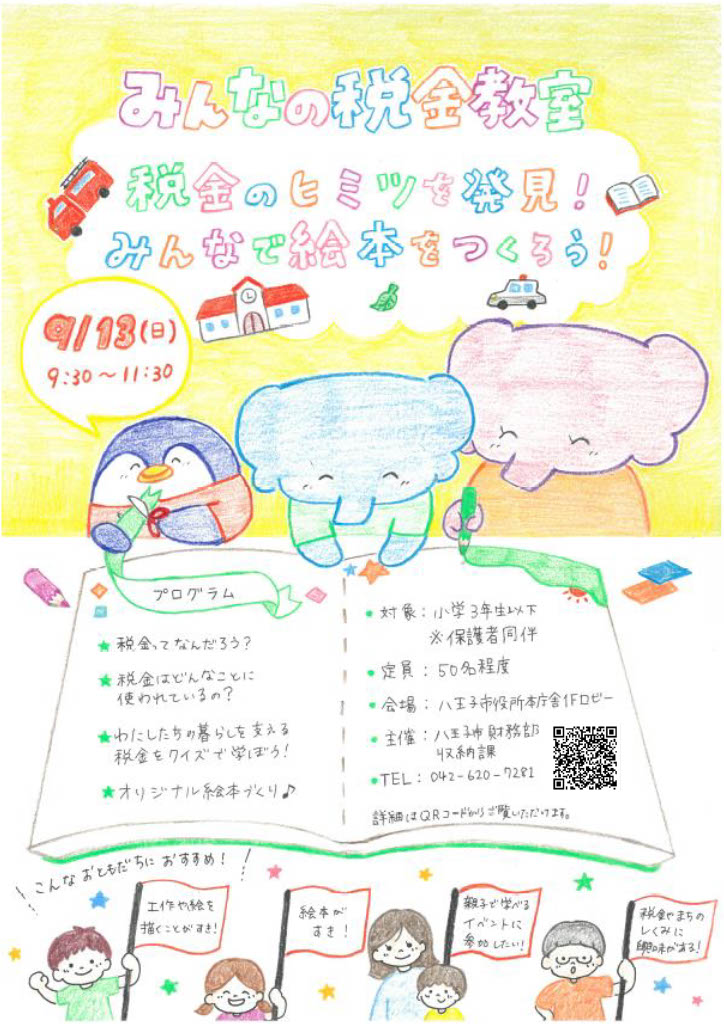 みんなの税金教室
税金のヒミツを発見！
みんなで絵本をつくろう！
9/13(日)
9:30〜11:30
プログラム
★税金ってなんだろう？
★税金はどんなことに
使われているの？
★わたしたちの暮らしを支える
税金をクイズで学ぼう！
★オリジナル絵本づくり♪
●対象：小学3年生以下
※保護者同伴
●定員：50名程度
●会場：八王子市役所本庁舎1Fロビー
●主催：八王子市財務部
収納課
●TEL：042-620-7281
詳細はQRコードからご覧いただけます。
こんなおともだちにおすすめ！
工作や絵を
描くことがすき！
絵本が
すき！
親子で学べる
イベントに
参加したい！
税金やまちの
しくみに
興味がある！